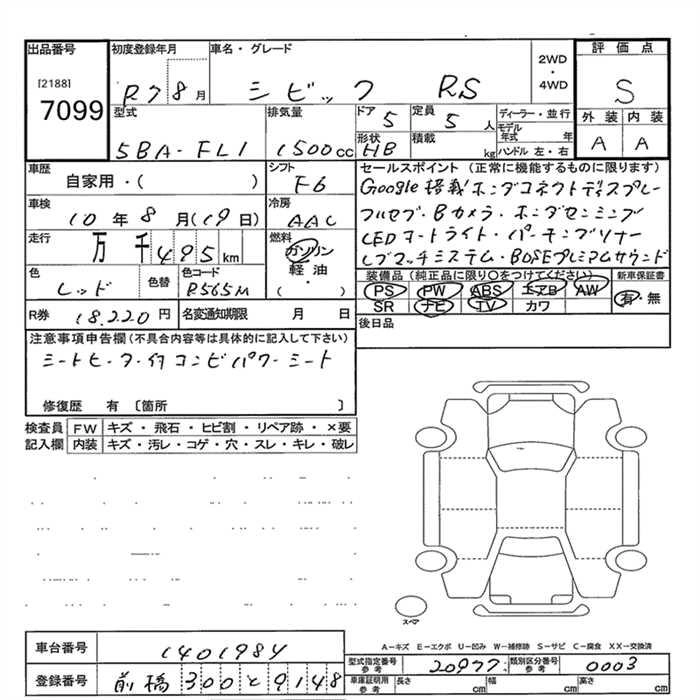 出品番号 初度登録年月 車名・グレード 2WD・4WD 評価点
[2188]
7099
R7 8月 シビック RS S
型式 排気量 ドア 定員 ディーラー・並行 外装 内装
5BA-FL1 1500cc 5 5人 モデル年式 年 A A
形状 積載 ハンドル 左・右
HB kg
車歴 シフト セールスポイント (正常に機能するものに限ります)
自家用・( ) F6 Google搭載ホンダコネクトディスプレー
車検 冷房 フルセグ・Bカメラ・ホンダセンシング
10年8月(19日) AAC LEDオートライト・パーキングソナー
走行 燃料 レブマッチシステム・BOSEプレミアムサウンド
万千495km ガソリン
軽油
( )
色 色替 色コード 装備品(純正品に限り○をつけてください) 新車保証書
レッド R565M PS PW ABS エアB AW 有・無
SR ナビ TV カワ
R券 18,220円 名変通知期限 月 日 後日品
注意事項申告欄(不具合内容等は具体的に記入して下さい)
シートヒーター付コンビパワーシート
修復歴 有〔箇所 〕
検査員 FW キズ・飛石・ヒビ割・リペア跡・×要
記入欄 内装 キズ・汚レ・コゲ・穴・スレ・キレ・破レ
スペア
A-キズ E-エクボ U-凹み W-補修跡 S-サビ C-腐食 XX-交換済
車台番号 1401984 型式指定番号 参考 20977 類別区分番号 参考 0003
登録番号 前橋 300 と 9148 車庫証明用 参考 長さ cm 幅 cm 高さ cm